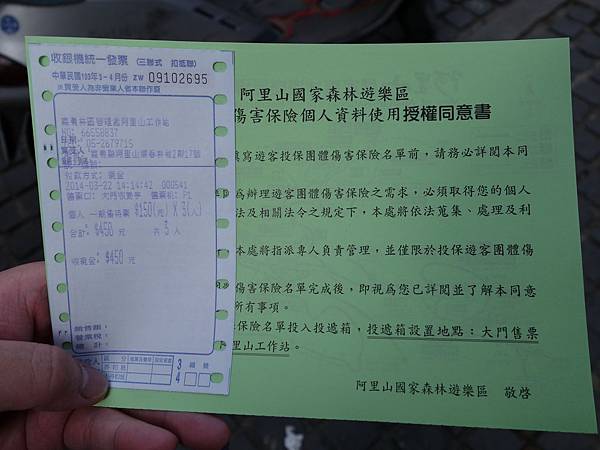 收銀機統一發票 (三聯式 扣抵聯)
中華民國103年3-4月份 ZW 09102695
嘉義林區管理處阿里山工作站
NO: 66558837
05-2679715
2014-03-22 14:14:42 000541
售票口: 大門收費亭 機號: P1
$150(元) X 3(人)
合計: $450 元 共 3 人
收現金: $450 元
銷售額:
發票稅:
總計:
3
4
阿里山國家森林遊樂區
傷害保險個人資料使用授權同意書
填寫遊客投保團體傷害保險名單前,請務必詳閱本同
為辦理遊客團體傷害保險之需求,必須取得您的個人
法及相關法令之規定下,本處將依法蒐集、處理及利
本處將指派專人負責管理,並僅限於投保遊客團體傷
傷害保險名單完成後,即視為您已詳閱並了解本同意
所有事項。
保險名單投入投遞箱,投遞箱設置地點:大門售票
里山工作站。
阿里山國家森林遊樂區 敬啓